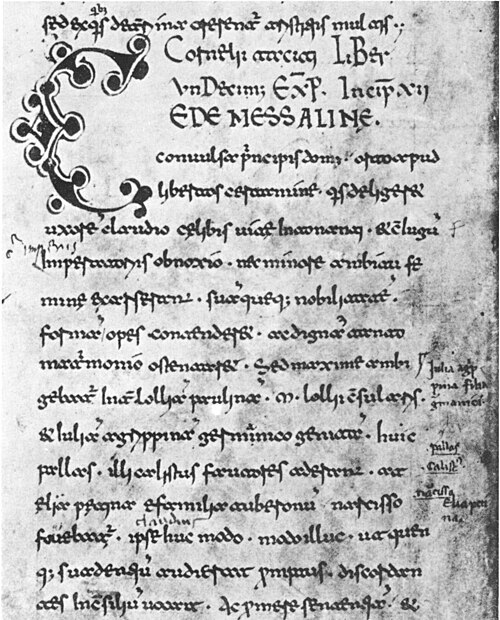 sed ex q̄s deterrima orerent̄ tristitiis multis
Cornelii taciti Liber
unDecimus EXP. Incip xii
CEDE MESSALINE.
convulsa prīncipis domꝰ· orto apud
libertos certamine· q̄s deligeret
uxorē claudio celibis vitae intoleranti· & c̄iugū
Imperatoris obnoxio· nec minore ambitu fe
imperiis
mine exarserant· suāqueq; nobilitatē·
formā opes contendere· ac digna tanto
matrimonio ostentare· Sed maxime ambi
gebat̄ Int̄ Lolliā paulinā· M· lollii c̄sularis·
& Iuliā agrippinā germanico genitā· huic
pallas· illi calistus fautores aderant· at
elia petina e familia tuberonū narcisso
claudius
fovebat̄· ipse huc modo· modo illuc· ut quem
q; suadentiū audierat p̄mptus· discordan
tes In c̄siliū vocat· Ac p̄mere sententiā· &
Iulia agrip
pina filia
germanici
pallas
calist
narcissꝰ
Elia peti
na